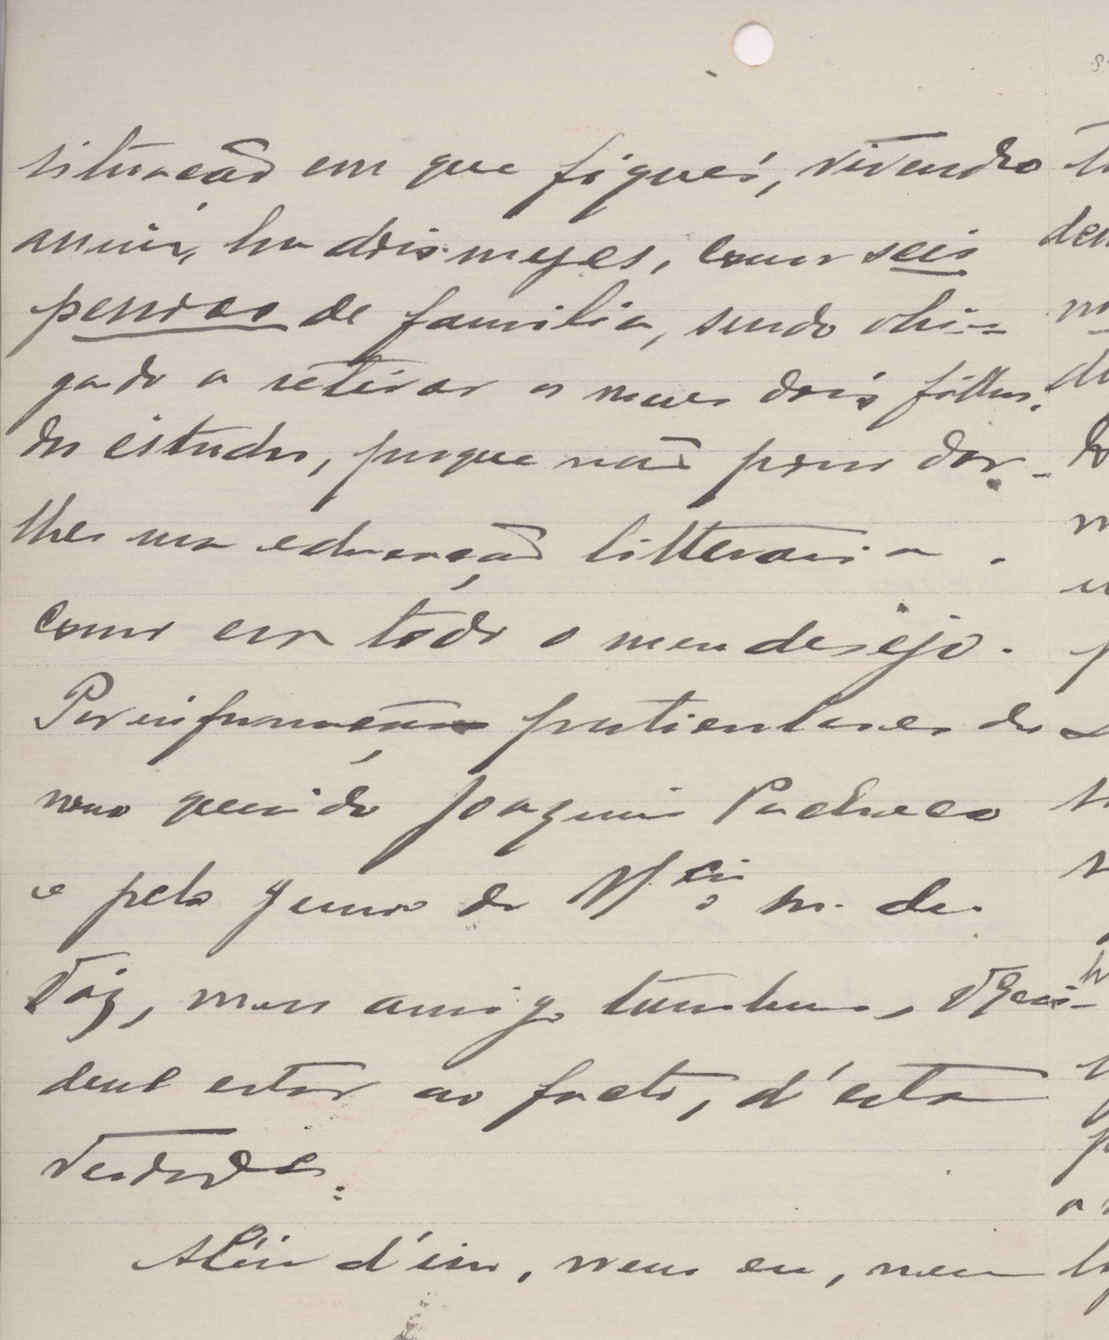 situação em que fiquei, vivendo
assim, ha dois mezes, com seis
pessoas de familia, sendo obri-
gado a retirar os meus dois filhos,
dos estudos, porque não posso dar-
lhes uma educação litteraria
como era todo o meu desejo.
Por informações particulares do
nosso querido Joaquim Pacheco
e pelo genro do
meu amigo tambem, VExcia
deve estar ao facto, d'esta
verdade.
Além d'isso, nem eu, nem